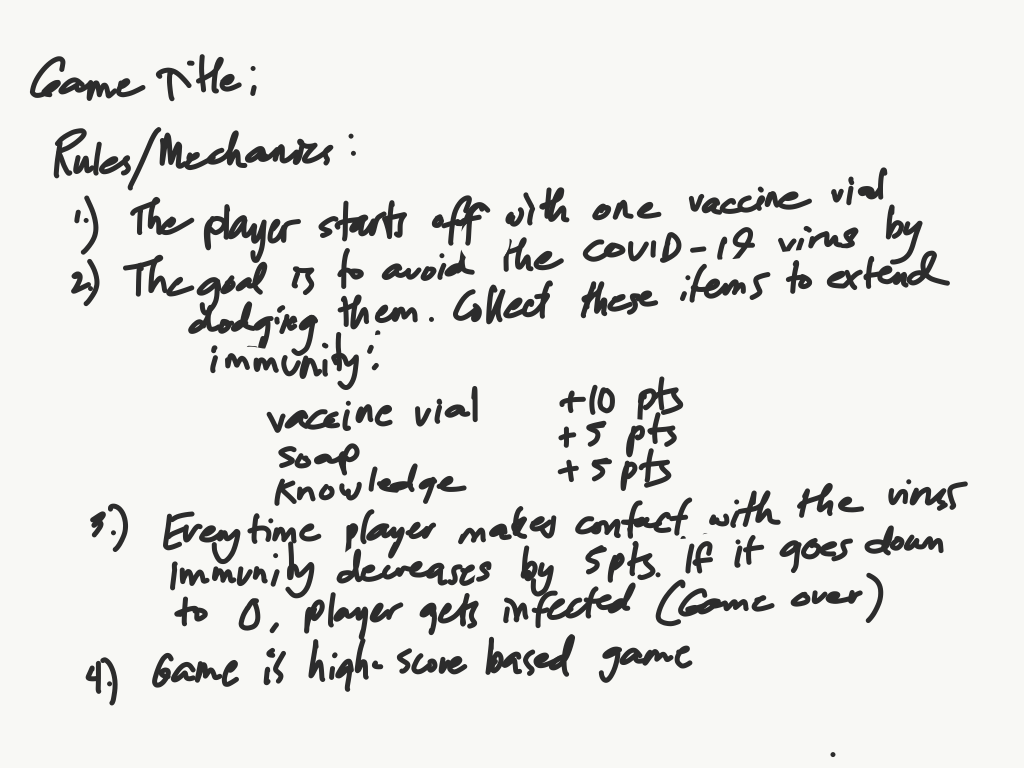 Game Title:
Rules/Mechanics:
1.) The player starts off with one vaccine vial
2.) The goal is to avoid the COVID-19 virus by
dodging them. Collect these items to extend
immunity:
vaccine vial +10 pts
soap +5 pts
knowledge +5 pts
3.) Everytime player makes contact with the virus
immunity decreases by 5pts. If it goes down
to 0, player gets infected (Game over)
4.) Game is high-score based game